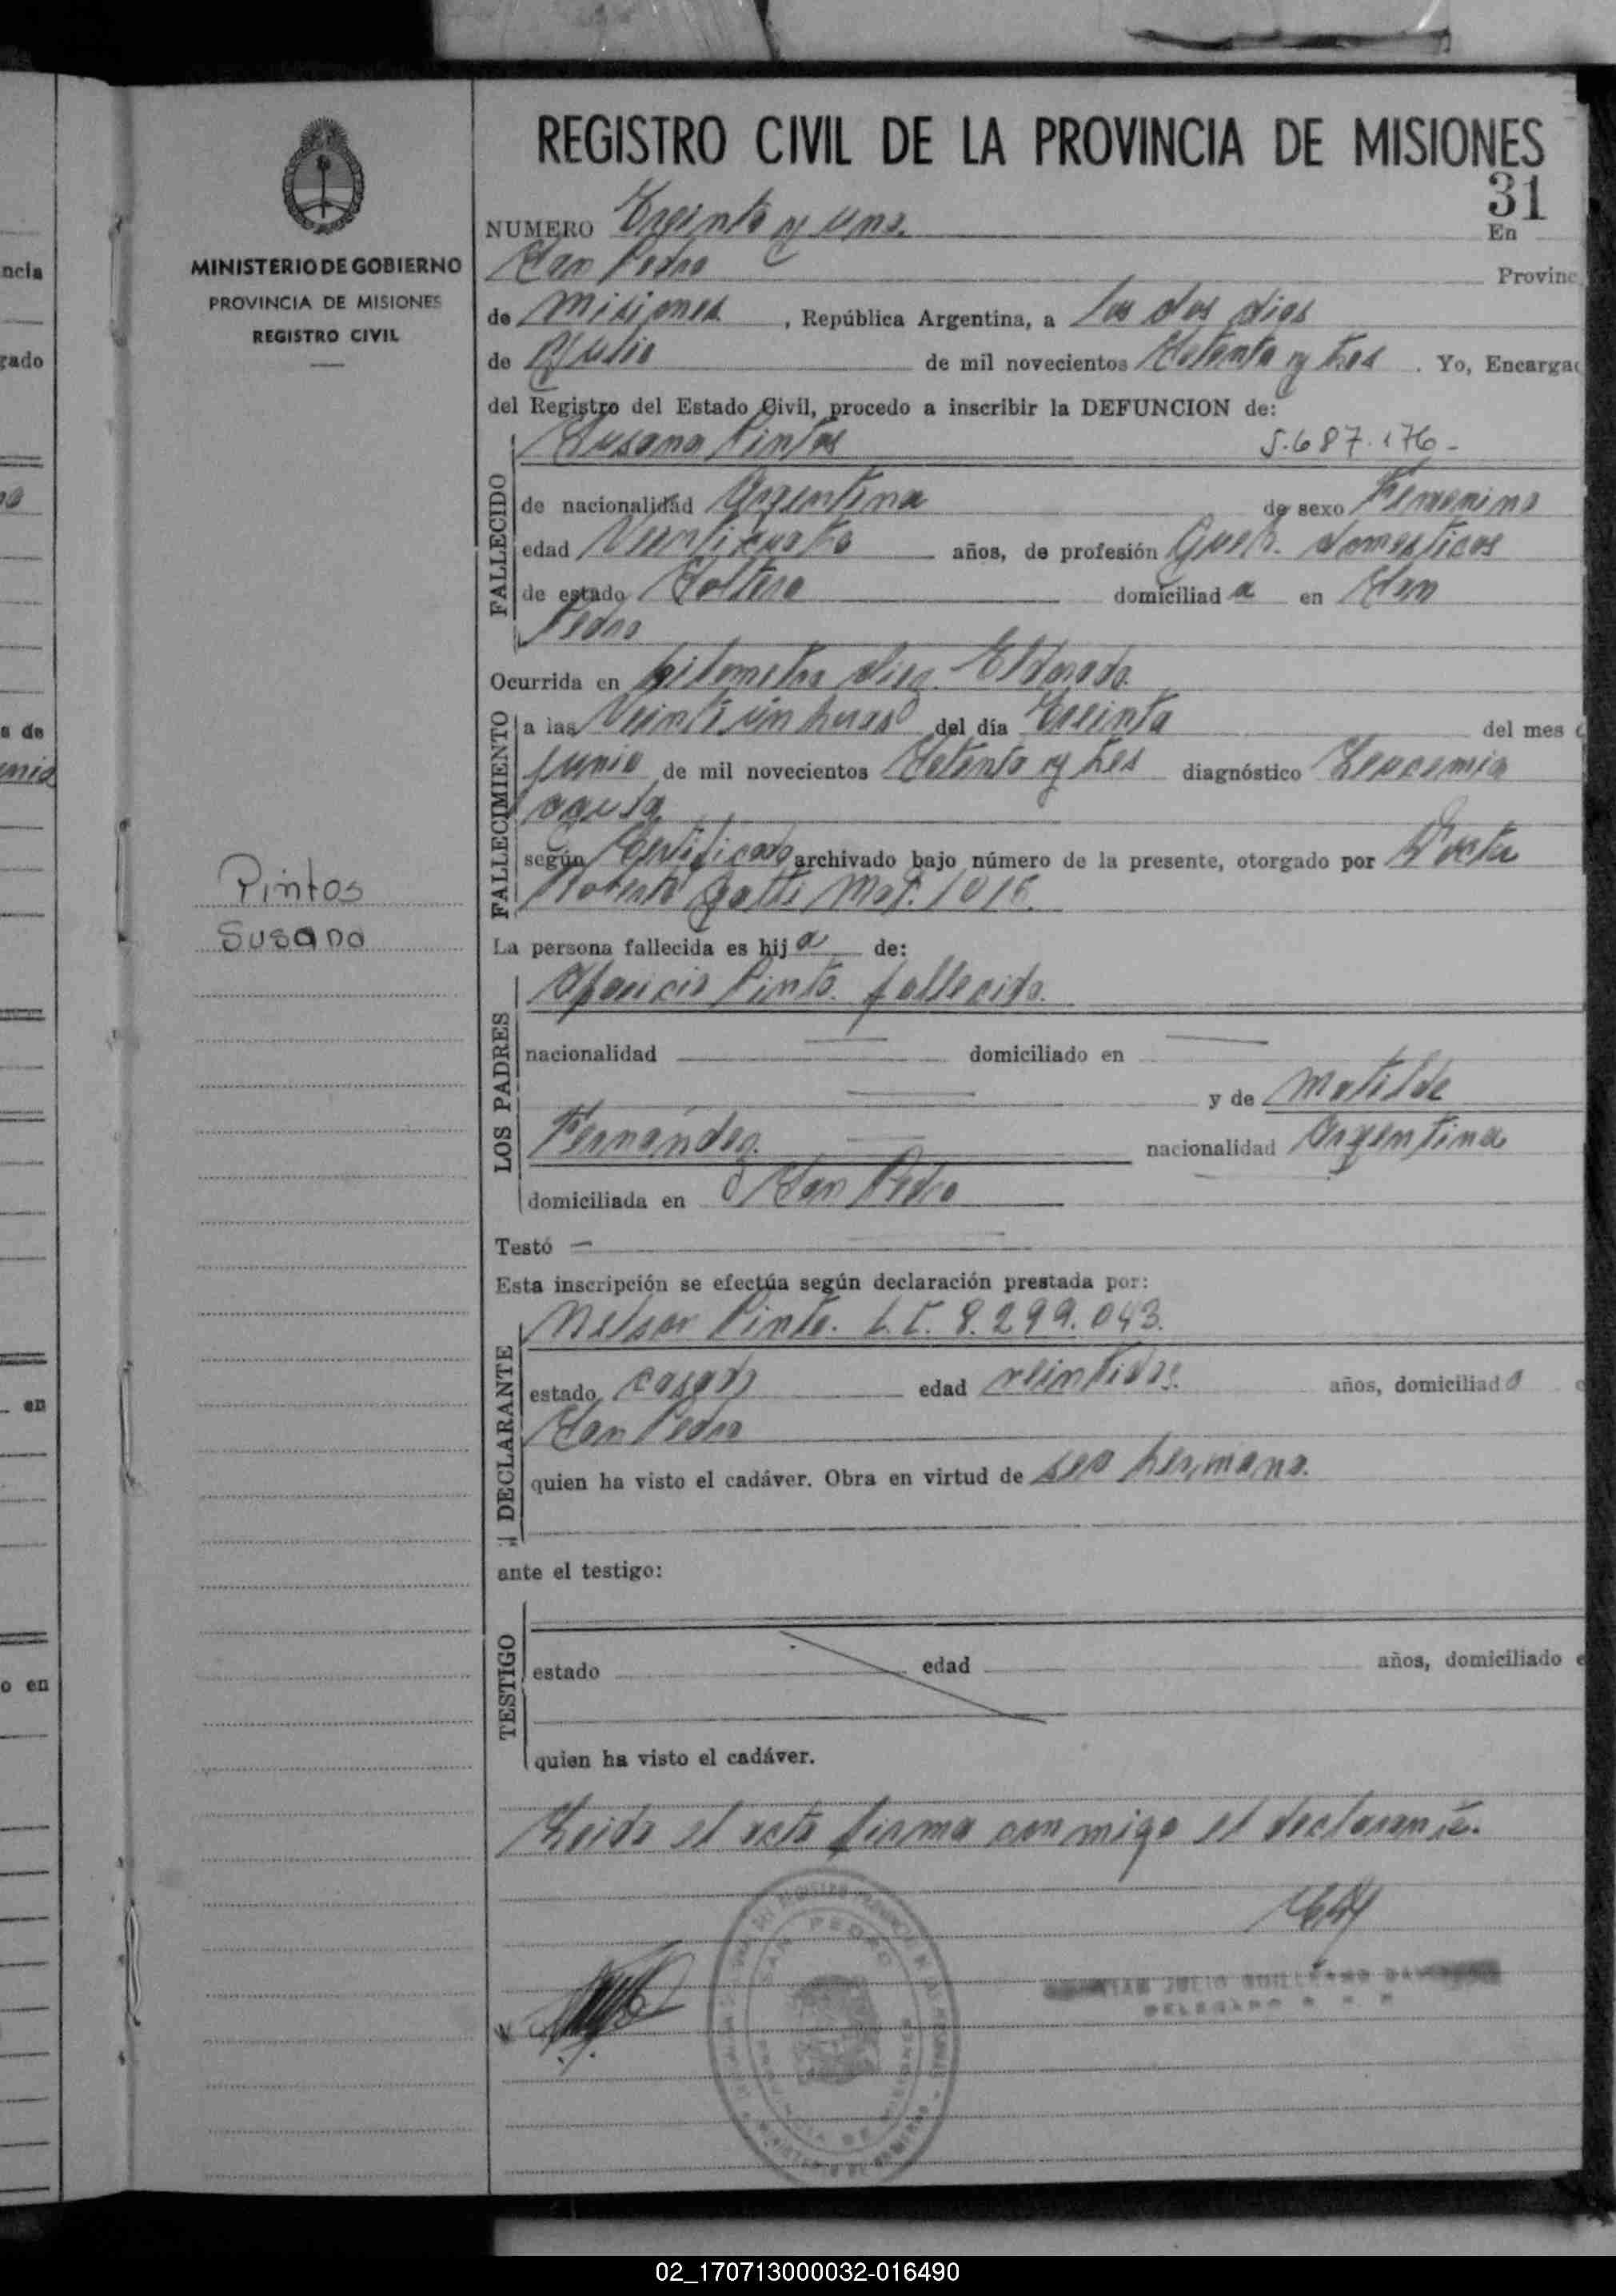 REGISTRO CIVIL DE LA PROVINCIA DE MISIONES
31
MINISTERIO DE GOBIERNO
PROVINCIA DE MISIONES
REGISTRO CIVIL
NUMERO Treinta y uno. En
San Pedro Provinc
de Misiones, República Argentina, a los dos dias
de Julio de mil novecientos Setenta y tres. Yo, Encargad
del Registro del Estado Civil, procedo a inscribir la DEFUNCION de:
Susana Pintos 5.687.176-
FALLECIDO
de nacionalidad Argentina de sexo Femenino
edad Veinticuatro años, de profesión Queh. domesticos
de estado Soltera domiciliada en San
Pedro
Ocurrida en kilometro diez. Eldorado.
FALLECIMIENTO
a las Veintiún horas del día Treinta del mes d
junio de mil novecientos Setenta y tres diagnóstico Leucemia
aguda
según Certificado archivado bajo número de la presente, otorgado por Doctor
Roberto Gatti Mat. 1016.
Pintos
Susana
La persona fallecida es hija de:
LOS PADRES
Aparicio Pinto. fallecido.
nacionalidad domiciliado en
y de Matilde
Fernández. nacionalidad Argentina
domiciliada en San Pedro
Testó —
Esta inscripción se efectúa según declaración prestada por:
DECLARANTE
Nelson Pinto. L.E. 8.299.043.
estado casado edad veintidos. años, domiciliado e
San Pedro
quien ha visto el cadáver. Obra en virtud de ser hermano.
ante el testigo:
TESTIGO
estado edad años, domiciliado e
quien ha visto el cadáver.
Leida el acta firma conmigo el declarante.
SAN PEDRO
JULIO GUILLERMO
DELEGADO
ncia
gado
s de
en
o en
02_170713000032-016490